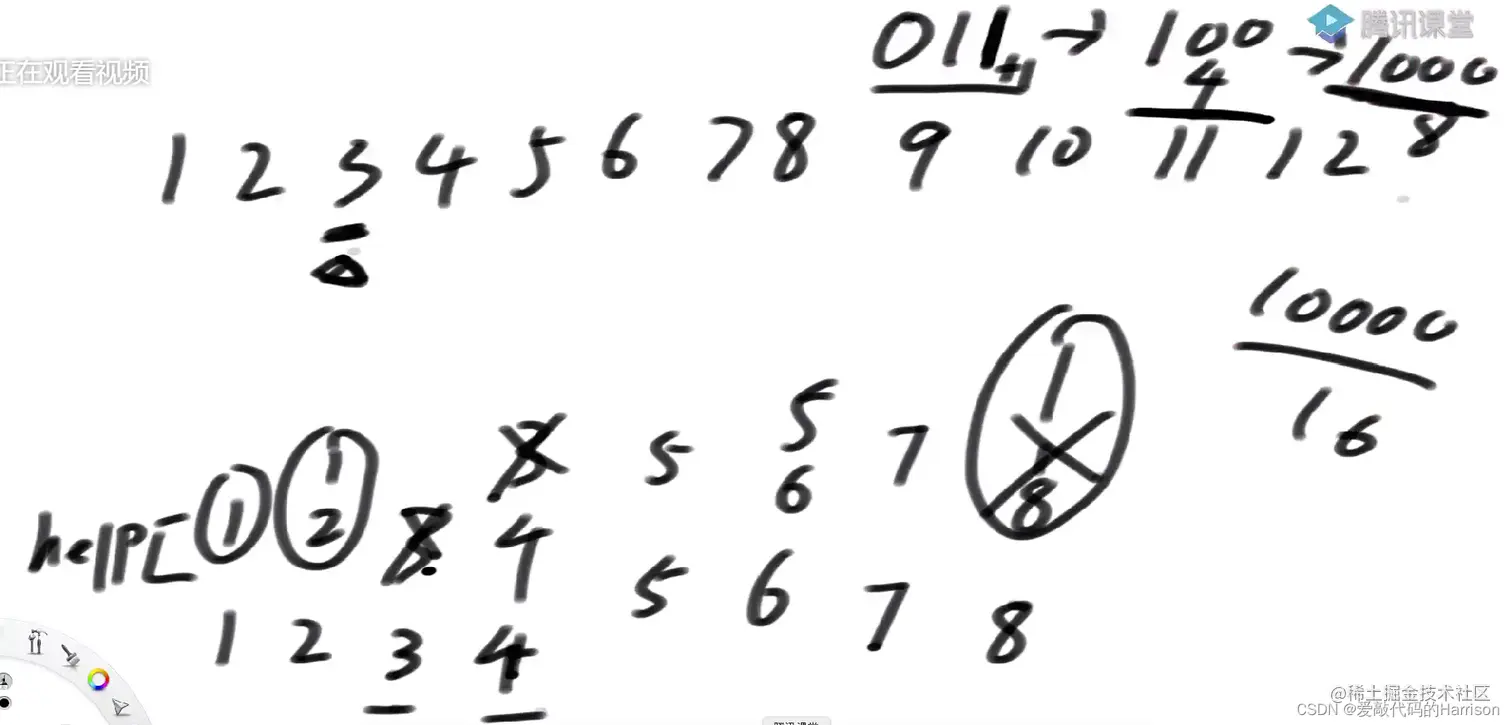 011+1 → 100 → 1000 腾讯课堂
正在观看视频
4
1 2 3 4 5 6 7 8 9 10 11 12 8
10000
16
1
5
1 5 7
6 8
help[ 1 2 4
5 6 7
1 2 3 4 8
@稀土掘金技术社区
CSDN @爱敲代码的Harrison